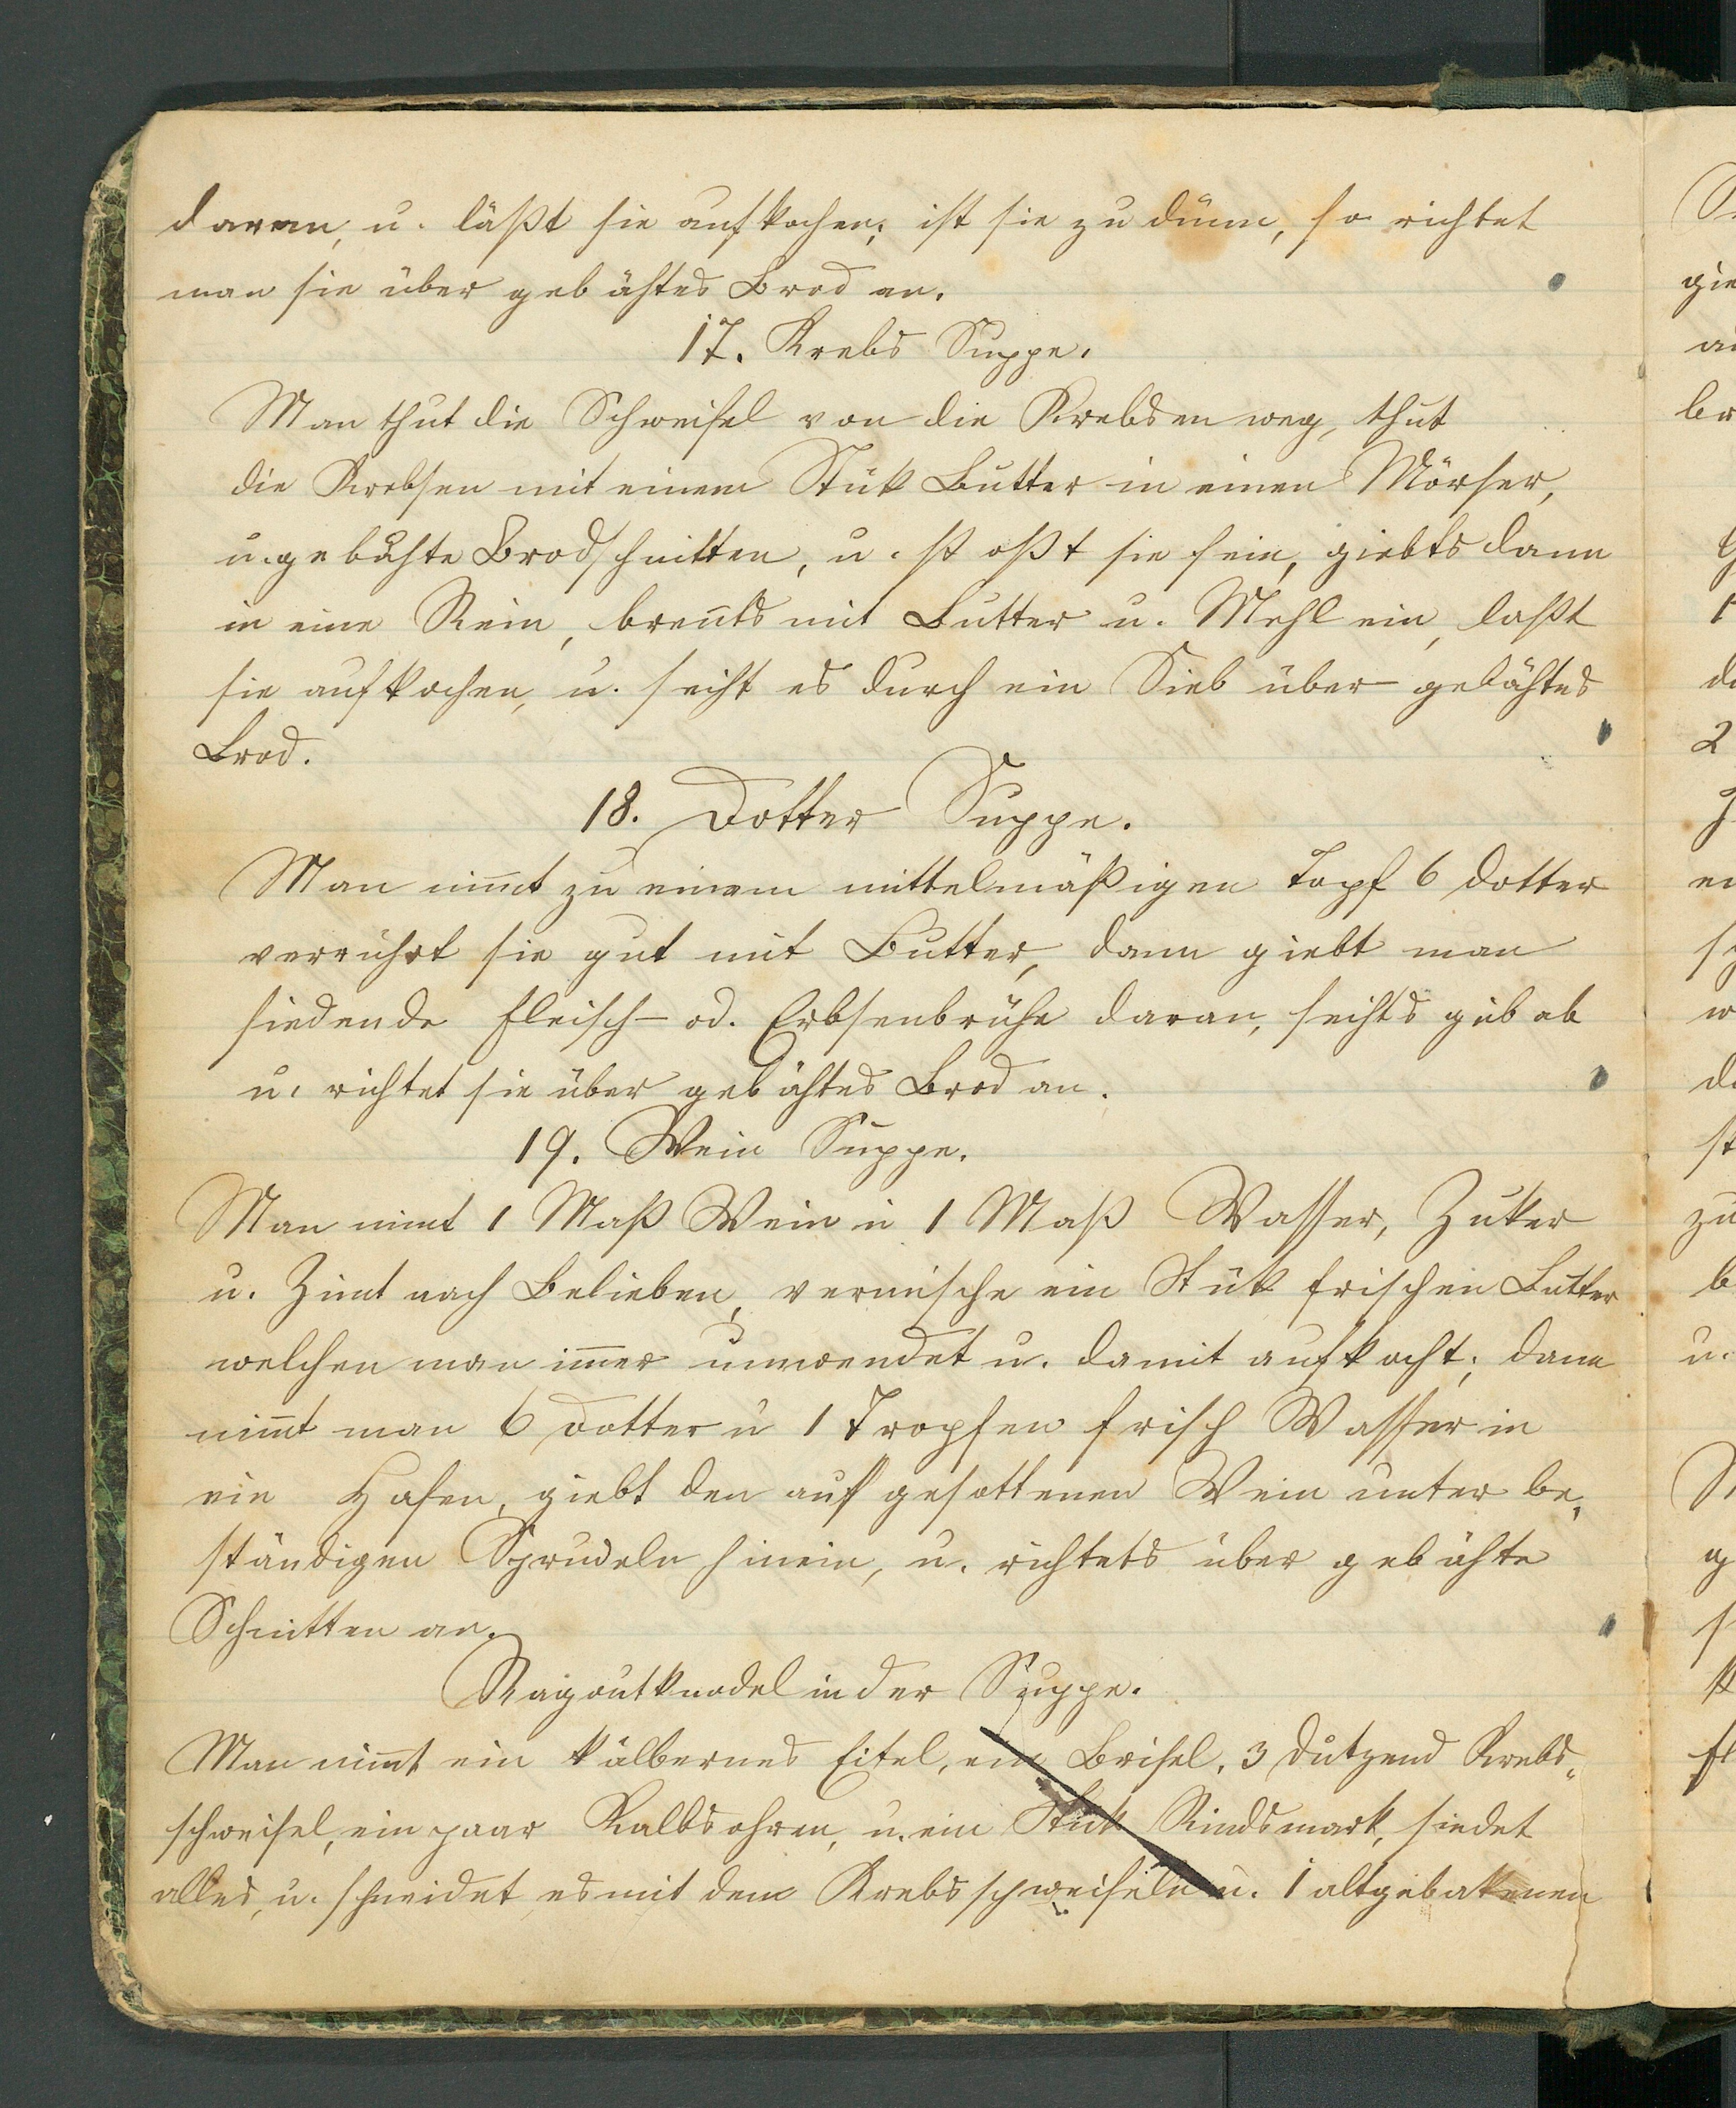 daran, u. läßt sie aufkochen; ist sie zu dünn, so richtet
man sie über gebähtes Brod an.
17. Krebs Suppe.
Man thut die Schweifel von die Krebsen weg, thut
die Krebsen mit einem Stük Butter in einen Mörser,
u. gebähte Brodschnitten, u. stoßt sie fein, giebts dann
in eine Rein, breñts mit Butter u. Mehl ein, laßt
sie aufkochen, u. seiht es durch ein Sieb über gebähtes
Brod.
18. Dotter Suppe.
Man nim̄t zu einem mittelmäßigen Topf 6 Dotter
verrührt sie gut mit Butter, dann giebt man
siedende Fleisch- od. Erbsenbrühe daran, seihts ab
u. richtet sie über gebähtes Brod an.
19. Wein Suppe.
Man nimt 1 Maß Wein u 1 Maß Wasser, Zuker
u. Zimt nach Belieben, vermische ein Stük frischen Butter
welchen man im̄er umwendet u. damit aufkocht; dann
nim̄t man 6 Dotter u 1 Tropfen frisch Wasser in
ein Hafen, giebt den aufgesottenen Wein unter be,
ständigen Sprudeln hinein, u. richtets über gebähte
Schnitten an.
Ragoutknodel in der Suppe.
Man nim̄t ein kälbernes Eitel, ein Brisel, 3 Dutzend Krebs„
schweifel, ein paar Kalbsohren, u. ein Stük Rindsmark, siedet
alles, u. schneidet es mit dem Krebsschweifeln u. 1 altgebakenen